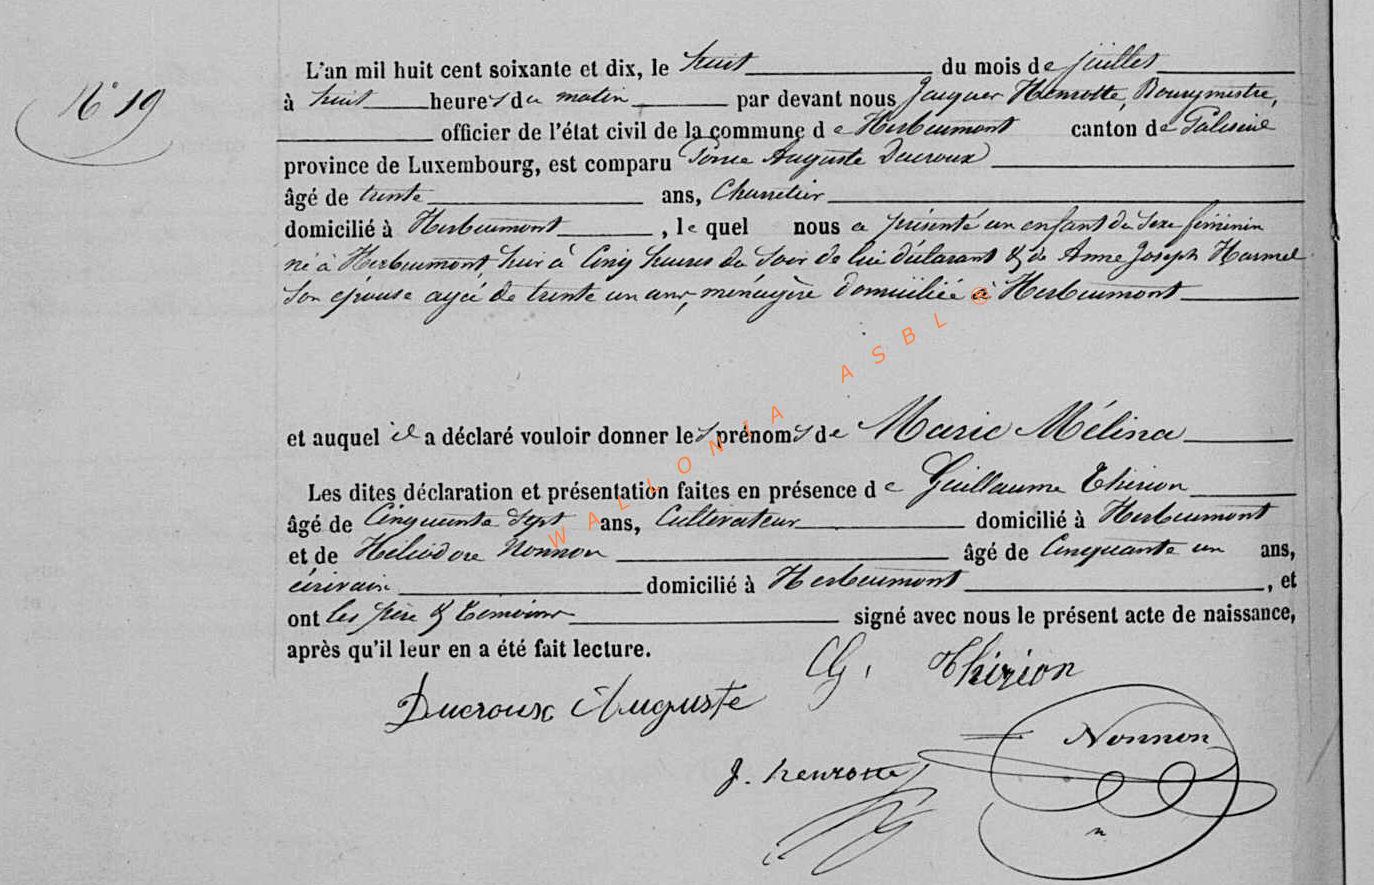 N° 19
L'an mil huit cent soixante et dix, le huit du mois de juillet
à huit heures du matin par devant nous Jacques Henrotte, Bourgmestre,
officier de l'état civil de la commune de Herbeumont canton de Paliseul
province de Luxembourg, est comparu Auguste Ducroux
âgé de trente ans, Charretier
domicilié à Herbeumont, le quel nous a présenté un enfant du sexe féminin
né à Herbeumont, hier à Cinq heures du Soir de lui déclarant & de Anne Joseph Harmel
Son épouse agée de trente un ans, ménagère domiciliée à Herbeumont
et auquel il a déclaré vouloir donner les prénoms de Marie Mélina
Les dites déclaration et présentation faites en présence de Guillaume Thirion
âgé de Cinquante Sept ans, Cultivateur domicilié à Herbeumont
et de Héliodore Nonnon âgé de Cinquante un ans,
écrivain domicilié à Herbeumont, et
ont les père & témoins signé avec nous le présent acte de naissance,
après qu'il leur en a été fait lecture.
G. Thirion
Ducroux Auguste
Nonnon
J. henrotte
WALLONIA ASBL ©